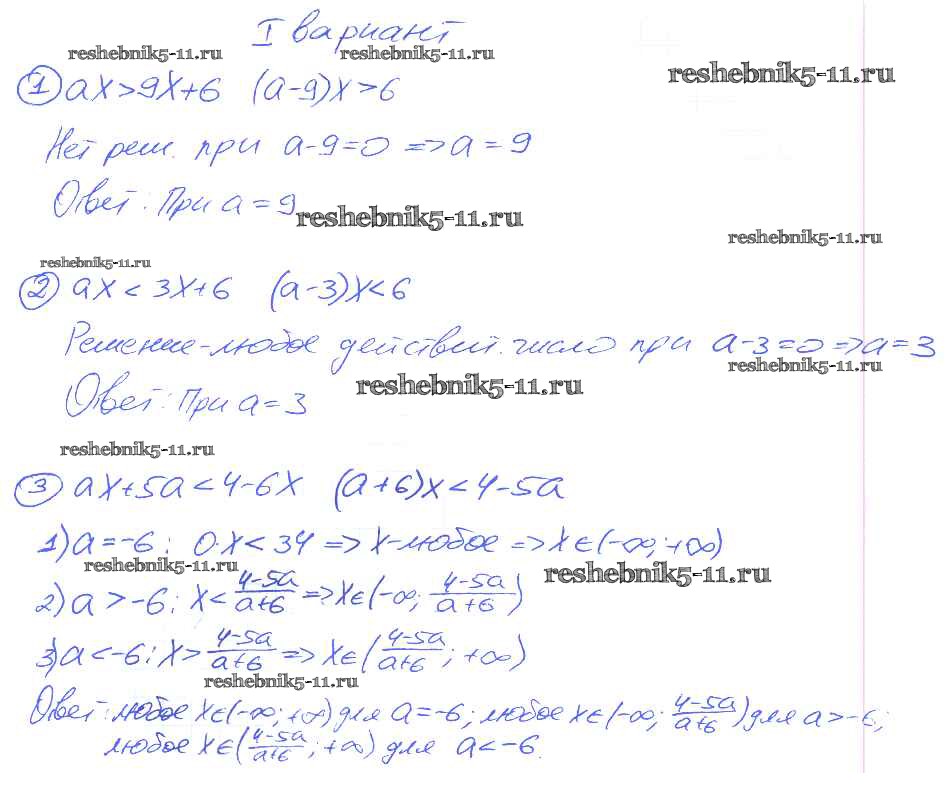 I вариант
reshebnik5-11.ru reshebnik5-11.ru
reshebnik5-11.ru
① ax>9x+6 (a-9)x>6
Нет реш. при a-9=0 => a=9
Ответ: При a=9
reshebnik5-11.ru
reshebnik5-11.ru
reshebnik5-11.ru
② ax<3x+6 (a-3)x<6
Решение-любое действит. число при a-3=0=>a=3
reshebnik5-11.ru
Ответ: При a=3
reshebnik5-11.ru
reshebnik5-11.ru
③ ax+5a<4-6x (a+6)x<4-5a
1) a=-6; 0·x<34 => x-любое => x∈(-∞;+∞)
reshebnik5-11.ru
reshebnik5-11.ru
2) a>-6; x<(4-5a)/(a+6) => x∈(-∞; (4-5a)/(a+6))
3) a<-6; x>(4-5a)/(a+6) => x∈((4-5a)/(a+6); +∞)
reshebnik5-11.ru
Ответ: любое x∈(-∞;+∞) для a=-6; любое x∈(-∞; (4-5a)/(a+6)) для a>-6;
любое x∈((4-5a)/(a+6); +∞) для a<-6.